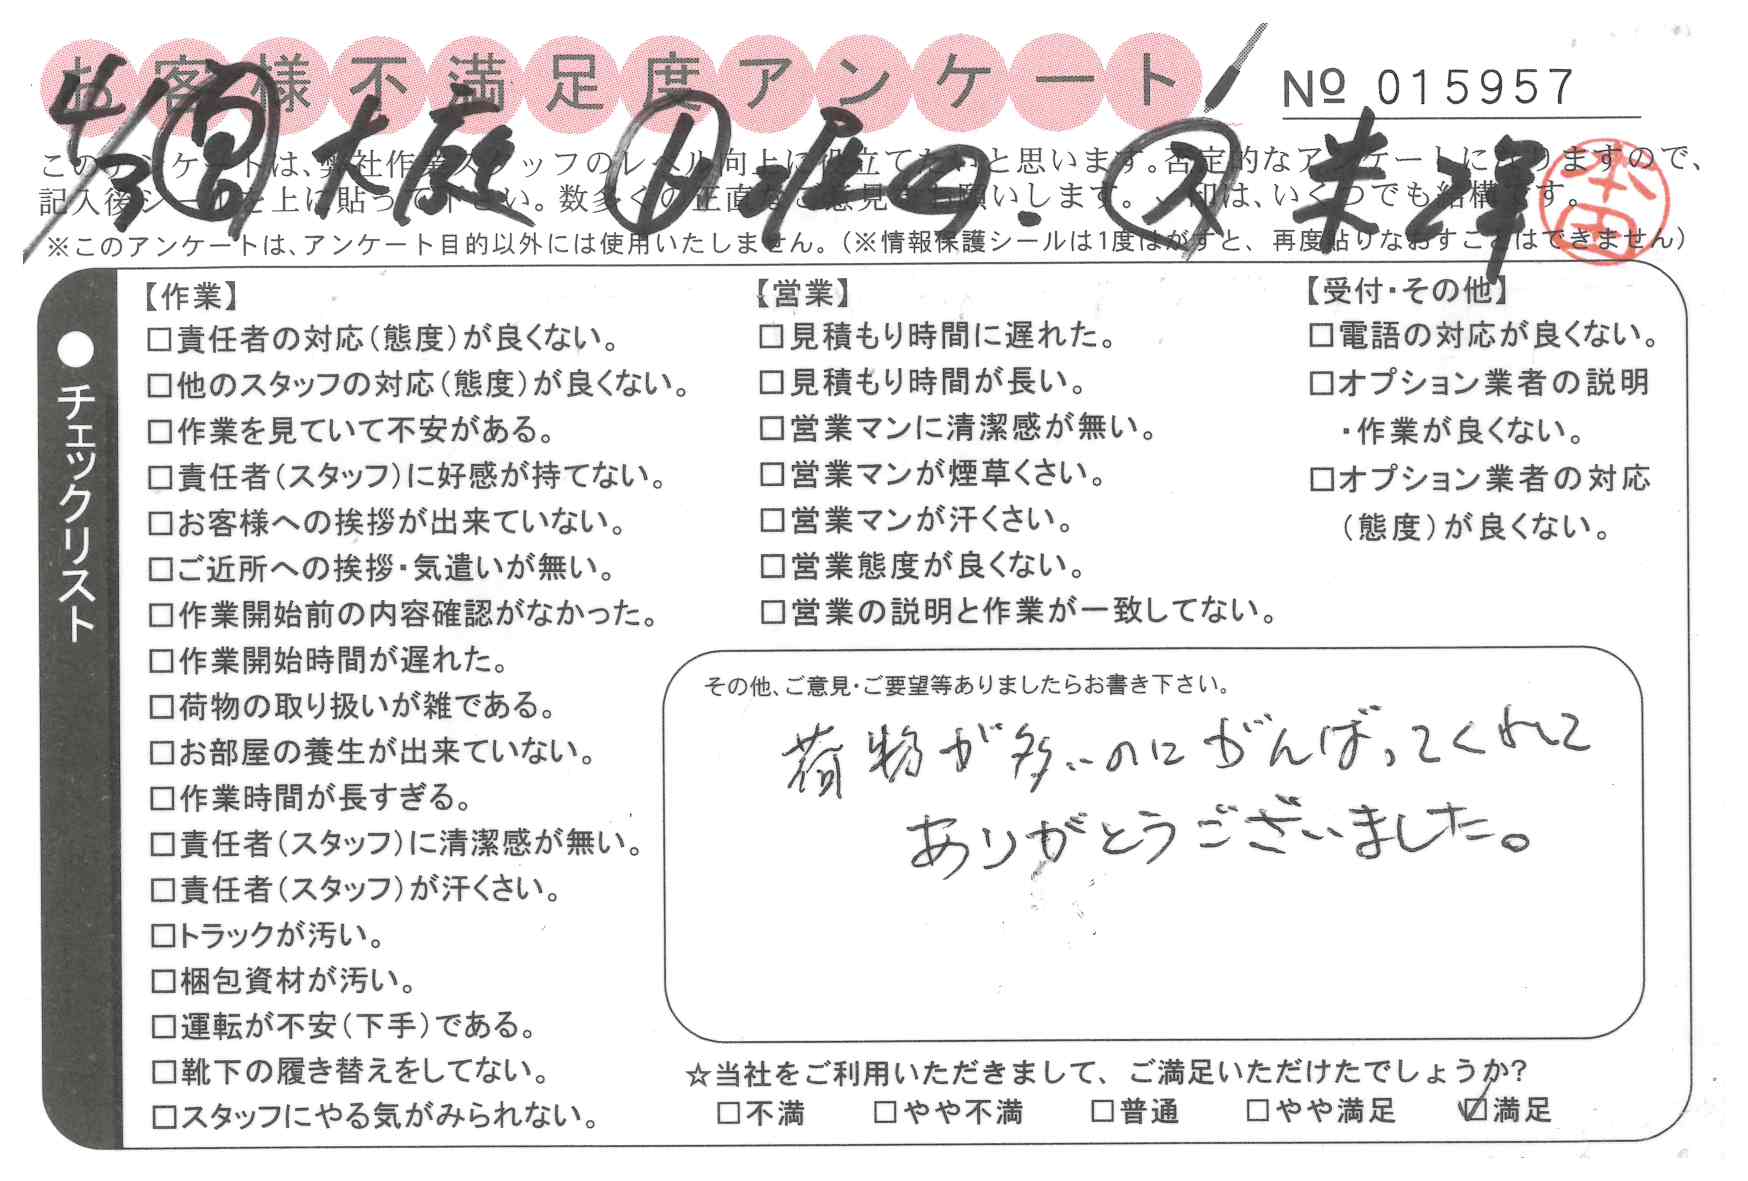 お客様不満足度アンケート
№ 015957
4/3
大庭
堀口
米澤
本田
このアンケートは、弊社作業スタッフのレベル向上に役立てたいと思います。否定的なアンケートになりますので、
記入後シールを上に貼って下さい。数多くの正直なご意見をお願いします。✓印は、いくつでも結構です。
※このアンケートは、アンケート目的以外には使用いたしません。(※情報保護シールは1度はがすと、再度貼りなおすことはできません)
●チェックリスト
【作業】
□責任者の対応(態度)が良くない。
□他のスタッフの対応(態度)が良くない。
□作業を見ていて不安がある。
□責任者(スタッフ)に好感が持てない。
□お客様への挨拶が出来ていない。
□ご近所への挨拶・気遣いが無い。
□作業開始前の内容確認がなかった。
□作業開始時間が遅れた。
□荷物の取り扱いが雑である。
□お部屋の養生が出来ていない。
□作業時間が長すぎる。
□責任者(スタッフ)に清潔感が無い。
□責任者(スタッフ)が汗くさい。
□トラックが汚い。
□梱包資材が汚い。
□運転が不安(下手)である。
□靴下の履き替えをしてない。
□スタッフにやる気がみられない。
【営業】
□見積もり時間に遅れた。
□見積もり時間が長い。
□営業マンに清潔感が無い。
□営業マンが煙草くさい。
□営業マンが汗くさい。
□営業態度が良くない。
□営業の説明と作業が一致してない。
【受付・その他】
□電話の対応が良くない。
□オプション業者の説明
・作業が良くない。
□オプション業者の対応
(態度)が良くない。
その他、ご意見・ご要望等ありましたらお書き下さい。
荷物が多いのにがんばってくれて
ありがとうございました。
☆当社をご利用いただきまして、ご満足いただけたでしょうか?
□不満 □やや不満 □普通 □やや満足 ☑満足